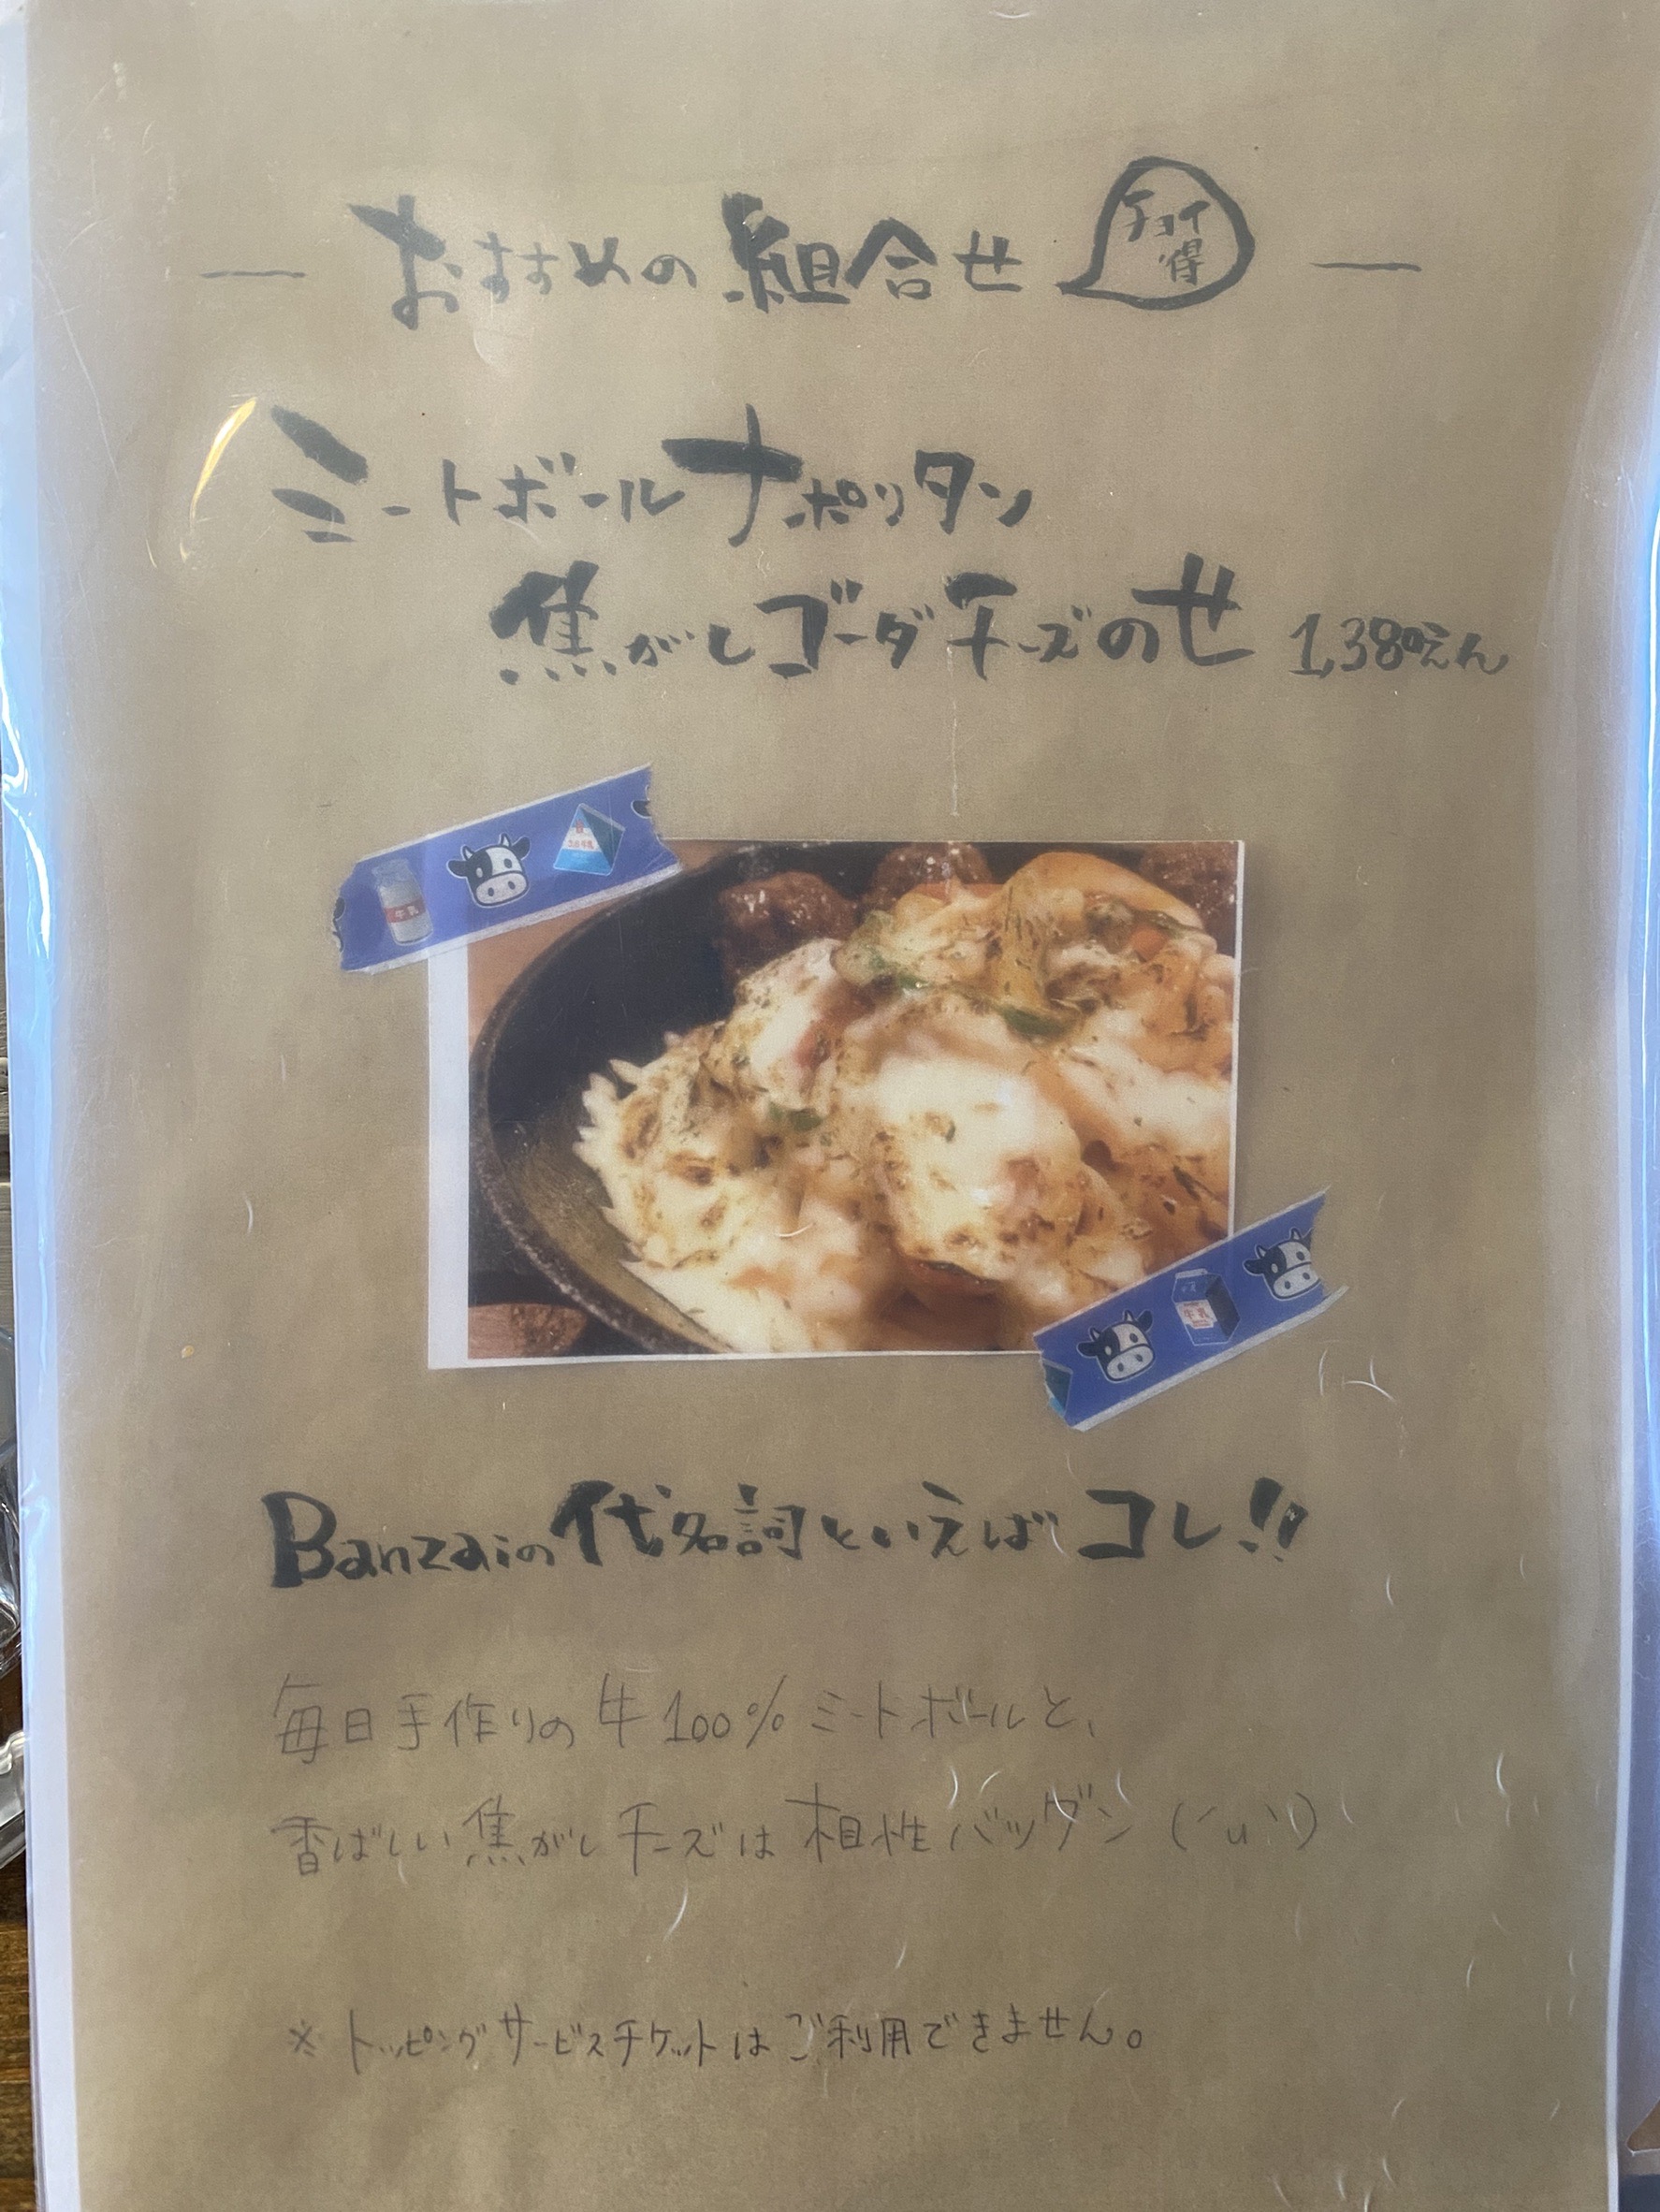 おすすめの組合せ チョイ得
ミートボールナポリタン
焦がしゴーダチーズのせ 1,380えん
牛乳
牛乳
Banzaiの代名詞といえばコレ!!
毎日手作りの牛100%ミートボールと、
香ばしい焦がしチーズは相性バツグン(´u`)
※トッピングサービスチケットはご利用できません。